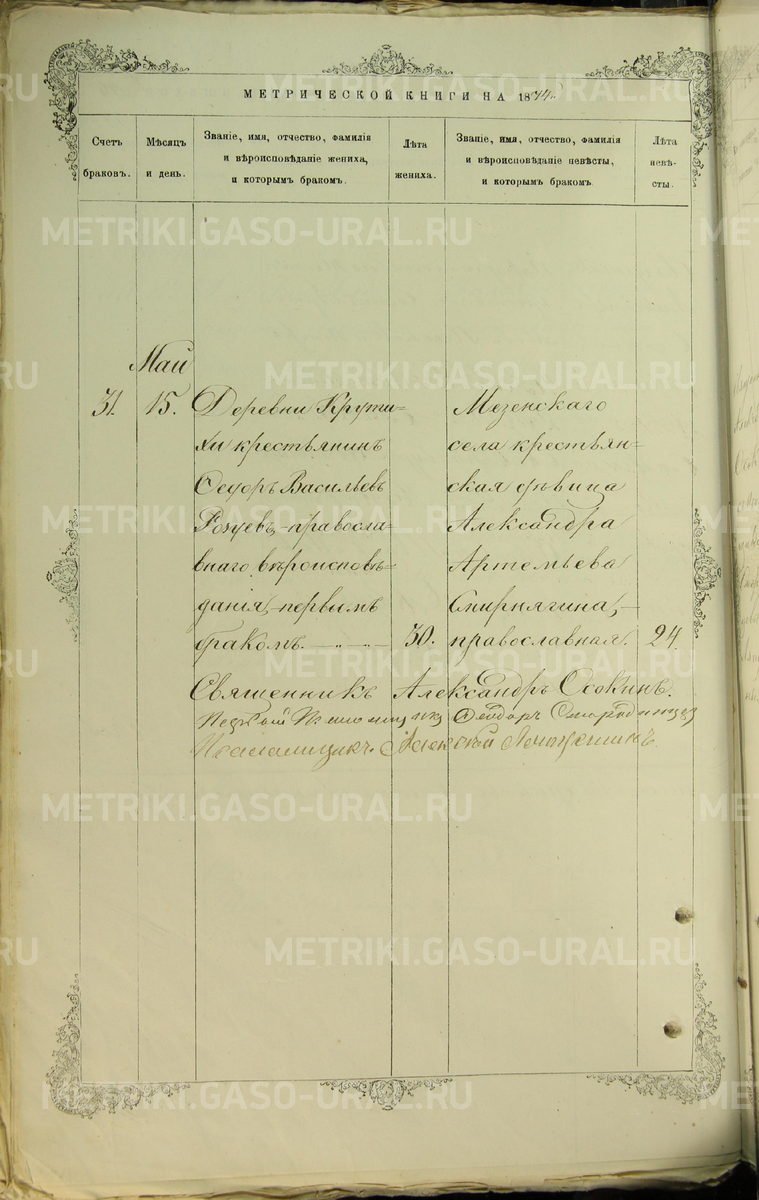 МЕТРИЧЕСКОЙ КНИГИ НА 1874
Счетъ браковъ.
Мѣсяцъ и день.
Званіе, имя, отчество, фамилія
и вѣроисповѣданіе жениха,
и которымъ бракомъ.
Лѣта жениха.
Званіе, имя, отчество, фамилія
и вѣроисповѣданіе невѣсты,
и которымъ бракомъ
Лѣта невѣ-
сты.
Май
31. 15. Деревни Крути=
хи крестьянинъ
Ѳедоръ Васильевъ
правосла=
внаго вѣроисповѣ=
данія, первымъ
бракомъ. 30.
Мезенскаго
села крестьян=
ская дѣвица
Александра
Артемьева
Смирнягина,
православная. 24.
Священникъ Александръ Осокинъ.
Ѳедоръ
Псаломщикъ Алексѣй
METRIKI.GASO-URAL.RU